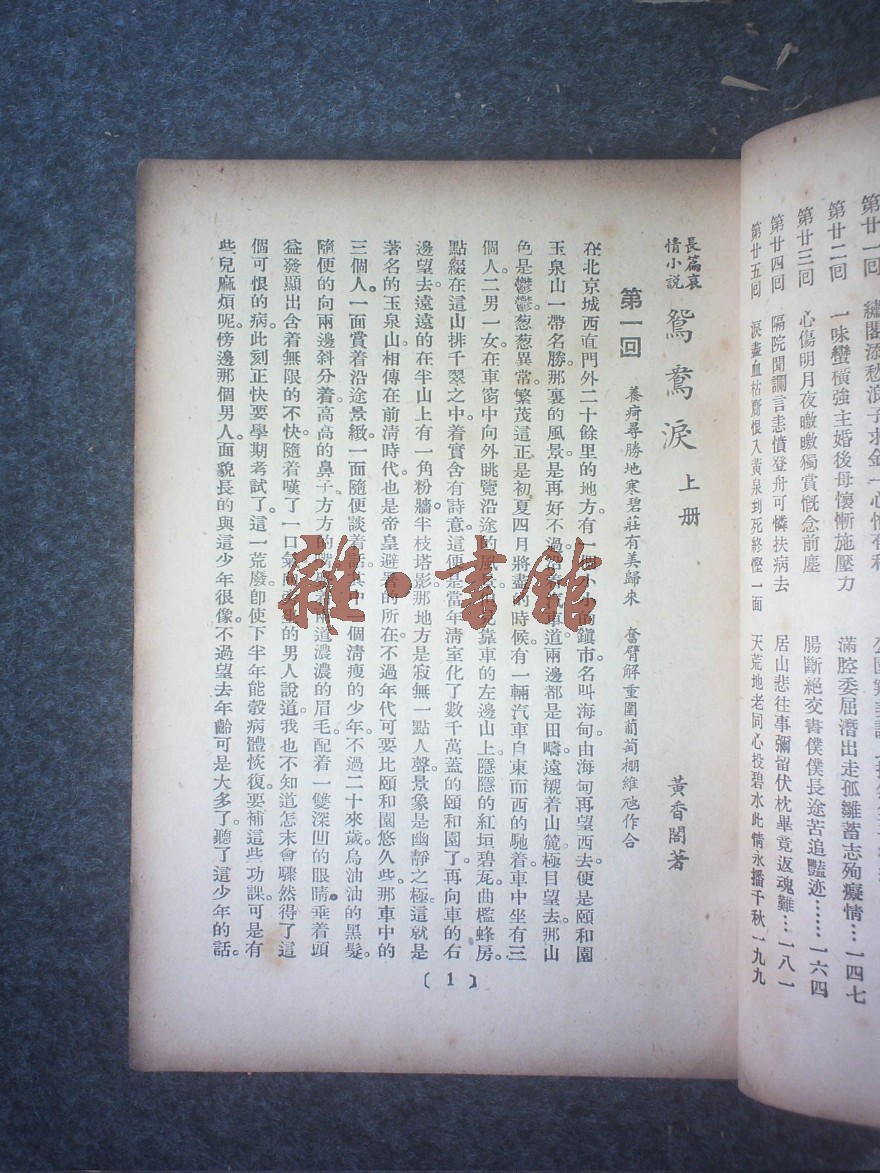 第廿一回 繡閣添愁浪子求金一心有
第廿二回 一味蠻橫強主婚後母懷慚施壓力 滿腔委屈潛出走孤雛蓄志殉癡情…一四七
第廿三回 心傷明月夜暾暾獨賞慨念前塵 腸斷絕交書僕僕長途苦追豔迹……一六四
第廿四回 隔院聞讕言恚憤登舟可憐扶病去 居山悲往事彌留伏枕畢竟返魂難…一八一
第廿五回 淚盡血枯齎恨入黃泉到死終慳一面 天荒地老同心投碧水此情永播千秋一九九
長篇哀情小說 鴛鴦淚 上册
黃香閣著
第一回 養疴尋勝地寒碧莊有美歸來 奮臂解重圍葡萄棚維虺作合
在北京城西直門外二十餘里的地方。有一個小小的鎮市。名叫海甸。由海甸再望西去。便是頤和園
玉泉山一帶名勝。那裏的風景。是再好不過。沿着汽車道。兩邊都是田疇。遠襯着山麓。極目望去。那山
色是鬱鬱葱葱。異常繁茂。這正是初夏四月將盡的時候。有一輛汽車。自東而西的馳着。車中坐有三
個人。二男一女。在車窗中向外眺覽沿途的風景。只見靠車的左邊山上。隱隱的紅垣碧瓦。曲檻蜂房。
點綴在這山排千翠之中。着實含有詩意。這便是當年清室化了數千萬蓋的頤和園了。再向車的右
邊望去。遠遠的在半山上有一角粉牆。半枝塔影。那地方是寂無一點人聲。景象是幽靜之極。這就是
著名的玉泉山。相傳在前清時代。也是帝皇避暑的所在。不過年代可要比頤和園悠久些。那車中的
三個人。一面賞着沿途景緻。一面隨便談着話。其中一個清瘦的少年。不過二十來歲。烏油油的黑髮。
隨便的向兩邊斜分着。高高的鼻子。方方的嘴唇。兩道濃濃的眉毛。配着一雙深凹的眼睛。垂着頭
益發顯出含着無限的不快。隨着嘆了一口氣。向旁坐的男人說道。我也不知道怎末會驟然得了這
個可恨的病。此刻正快要學期考試了。這一荒廢。卽使下半年能彀病體恢復。要補這些功課。可是有
些兒麻煩呢。傍邊那個男人。面貌長的與這少年很像。不過望去年齡可是大多了。聽了這少年的話。
〔1〕
雜·書館